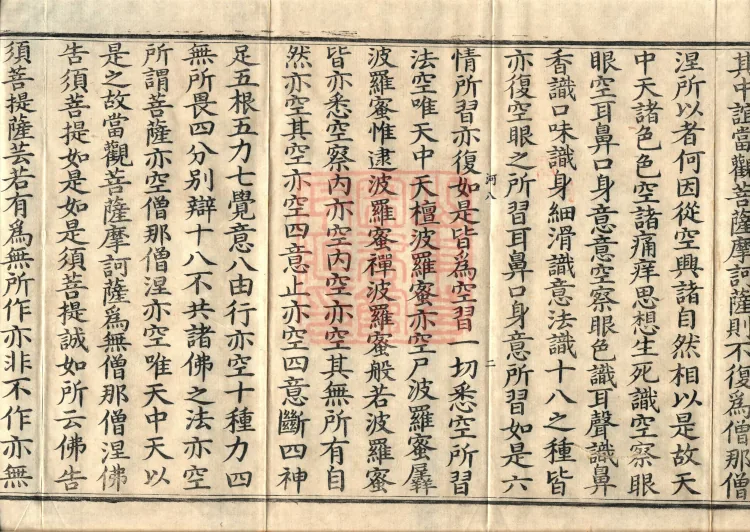 其中誼當觀菩薩摩訶薩則不復爲僧那僧
涅所以者何因從空興諸自然相以是故天
中天諸色色空諸痛痒思想生死識空察眼
眼空耳鼻口身意意空察眼色識耳聲識鼻
香識口味識身細滑識意法識十八之種皆
亦復空眼之所習耳鼻口身意所習如是六
河八 二
情所習亦復如是皆爲空習一切悉空所習
法空唯天中天檀波羅蜜亦空尸波羅蜜羼
波羅蜜惟逮波羅蜜禪波羅蜜般若波羅蜜
皆亦悉空察內亦空內空亦空其無所有自
然亦空其空亦空四意止亦空四意斷四神
足五根五力七覺意八由行亦空十種力四
無所畏四分別辯十八不共諸佛之法亦空
所謂菩薩亦空僧那僧涅亦空唯天中天以
是之故當觀菩薩摩訶薩爲無僧那僧涅佛
告須菩提如是如是須菩提誠如所云佛告
須菩提薩芸若有爲無所作亦非不作亦無